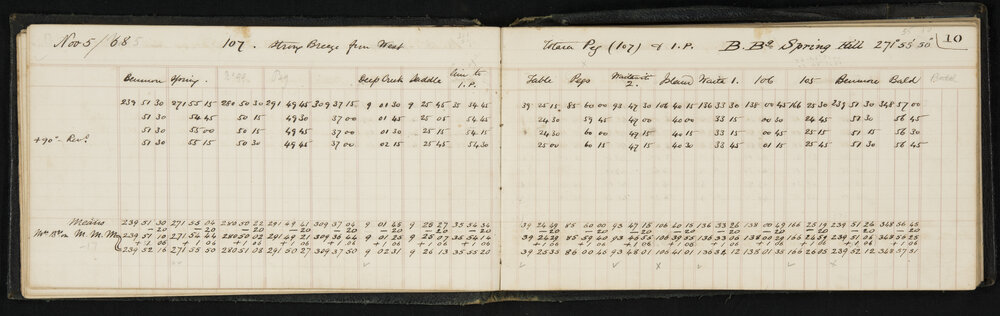 Nov 5/68 107. Strong Breeze from West
Benmore Spring. Deep Creek Saddle Line to I.P.
239 51 30 271 55 15 280 50 30 291 49 45 309 37 15 9 01 30 9 25 45 35 54 45
51 30 54 45 50 15 49 30 37 00 01 45 25 05 54 45
51 30 55 00 50 15 49 45 37 00 01 30 25 15 54 15
+90° Rev. 51 30 55 15 50 30 49 45 37 00 02 15 25 45 54 30
Means 239 51 30 271 55 04 280 50 22 291 49 41 309 37 04 9 01 45 9 25 27 35 54 34
-20 -20 -20 -20 -20 -20 -20 -20
M. M. M. 239 51 10 271 54 44 280 50 02 291 49 21 309 36 44 9 01 25 9 25 07 35 54 14
+1 06 +1 06 +1 06 +1 06 +1 06 +1 06 +1 06 +1 06
239 52 16 271 55 50 280 51 08 291 50 27 309 37 50 9 02 31 9 26 13 35 55 20
Peg (107) & I.P. B. Bg Spring Hill 271° 55' 50" 10
Table Pegs 2. Island Waite 1. 106 105 Benmore Bald
39 25 15 85 60 00 93 47 30 106 40 15 136 33 30 138 00 45 166 25 30 239 51 30 348 57 00
24 30 59 45 47 00 40 00 33 15 00 30 24 45 51 30 56 45
24 30 60 00 47 15 40 15 33 15 00 45 25 15 51 15 56 30
25 00 60 15 47 15 40 30 33 30 01 15 25 45 51 30 56 45
39 24 49 85 60 00 93 47 15 106 40 15 136 33 26 138 00 49 166 25 19 239 51 26 348 56 45
-20 -20 -20 -20 -20 -20 -20 -20 -20
39 24 29 85 59 40 93 46 55 106 39 55 136 33 06 138 00 29 166 24 59 239 51 06 348 56 25
+1 06 +1 06 +1 06 +1 06 +1 06 +1 06 +1 06 +1 06 +1 06
39 25 35 86 00 46 93 48 01 106 41 01 136 34 12 138 01 35 166 26 05 239 52 12 348 57 31